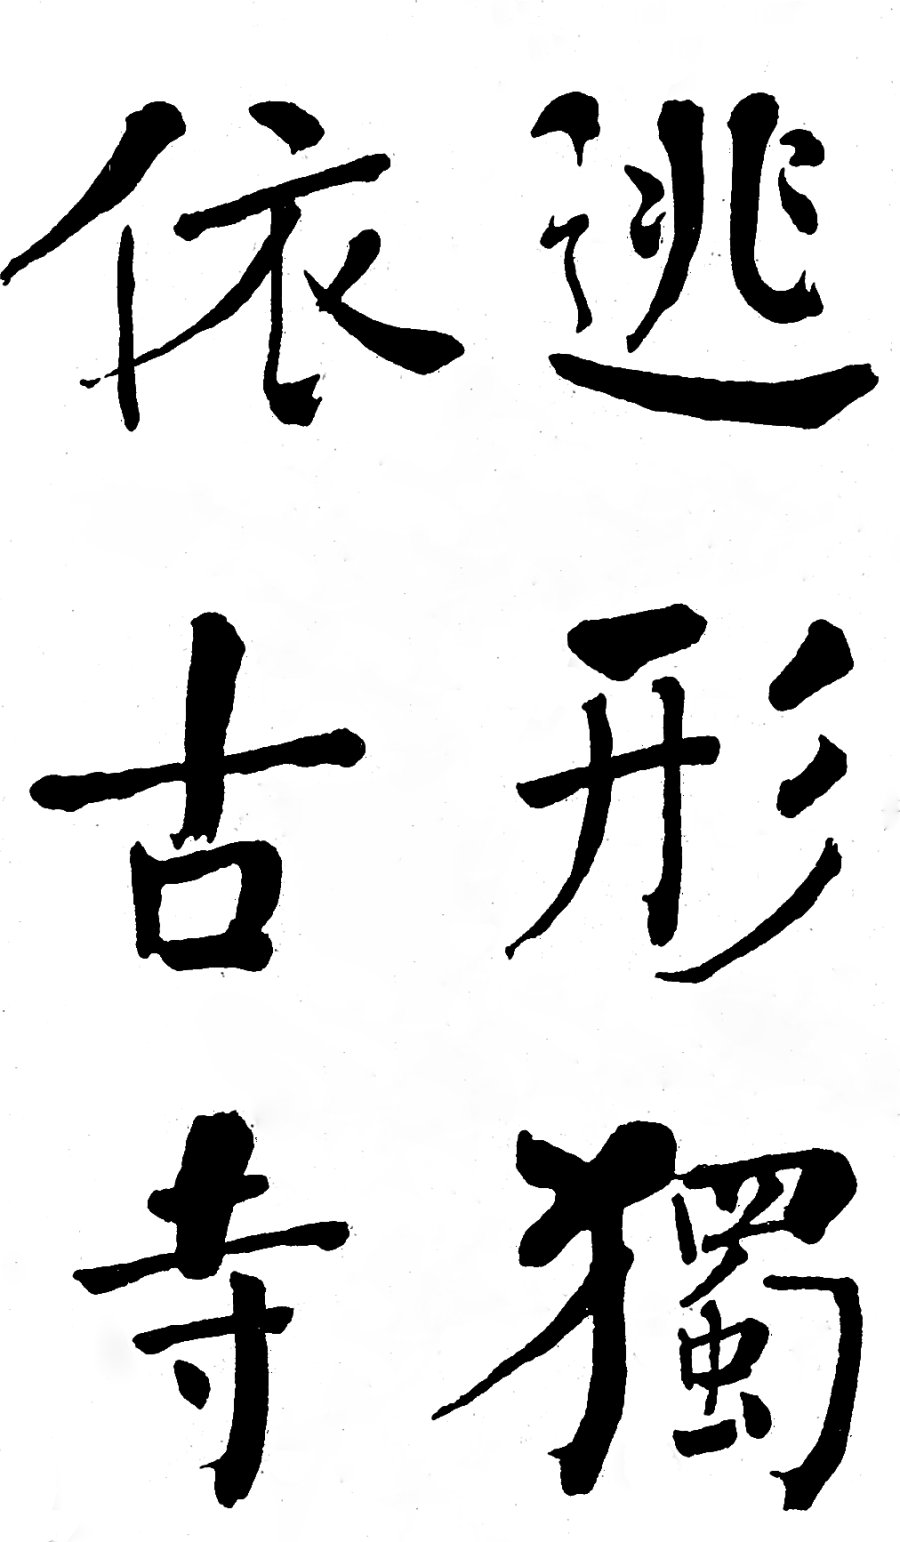 逃形獨
依古寺